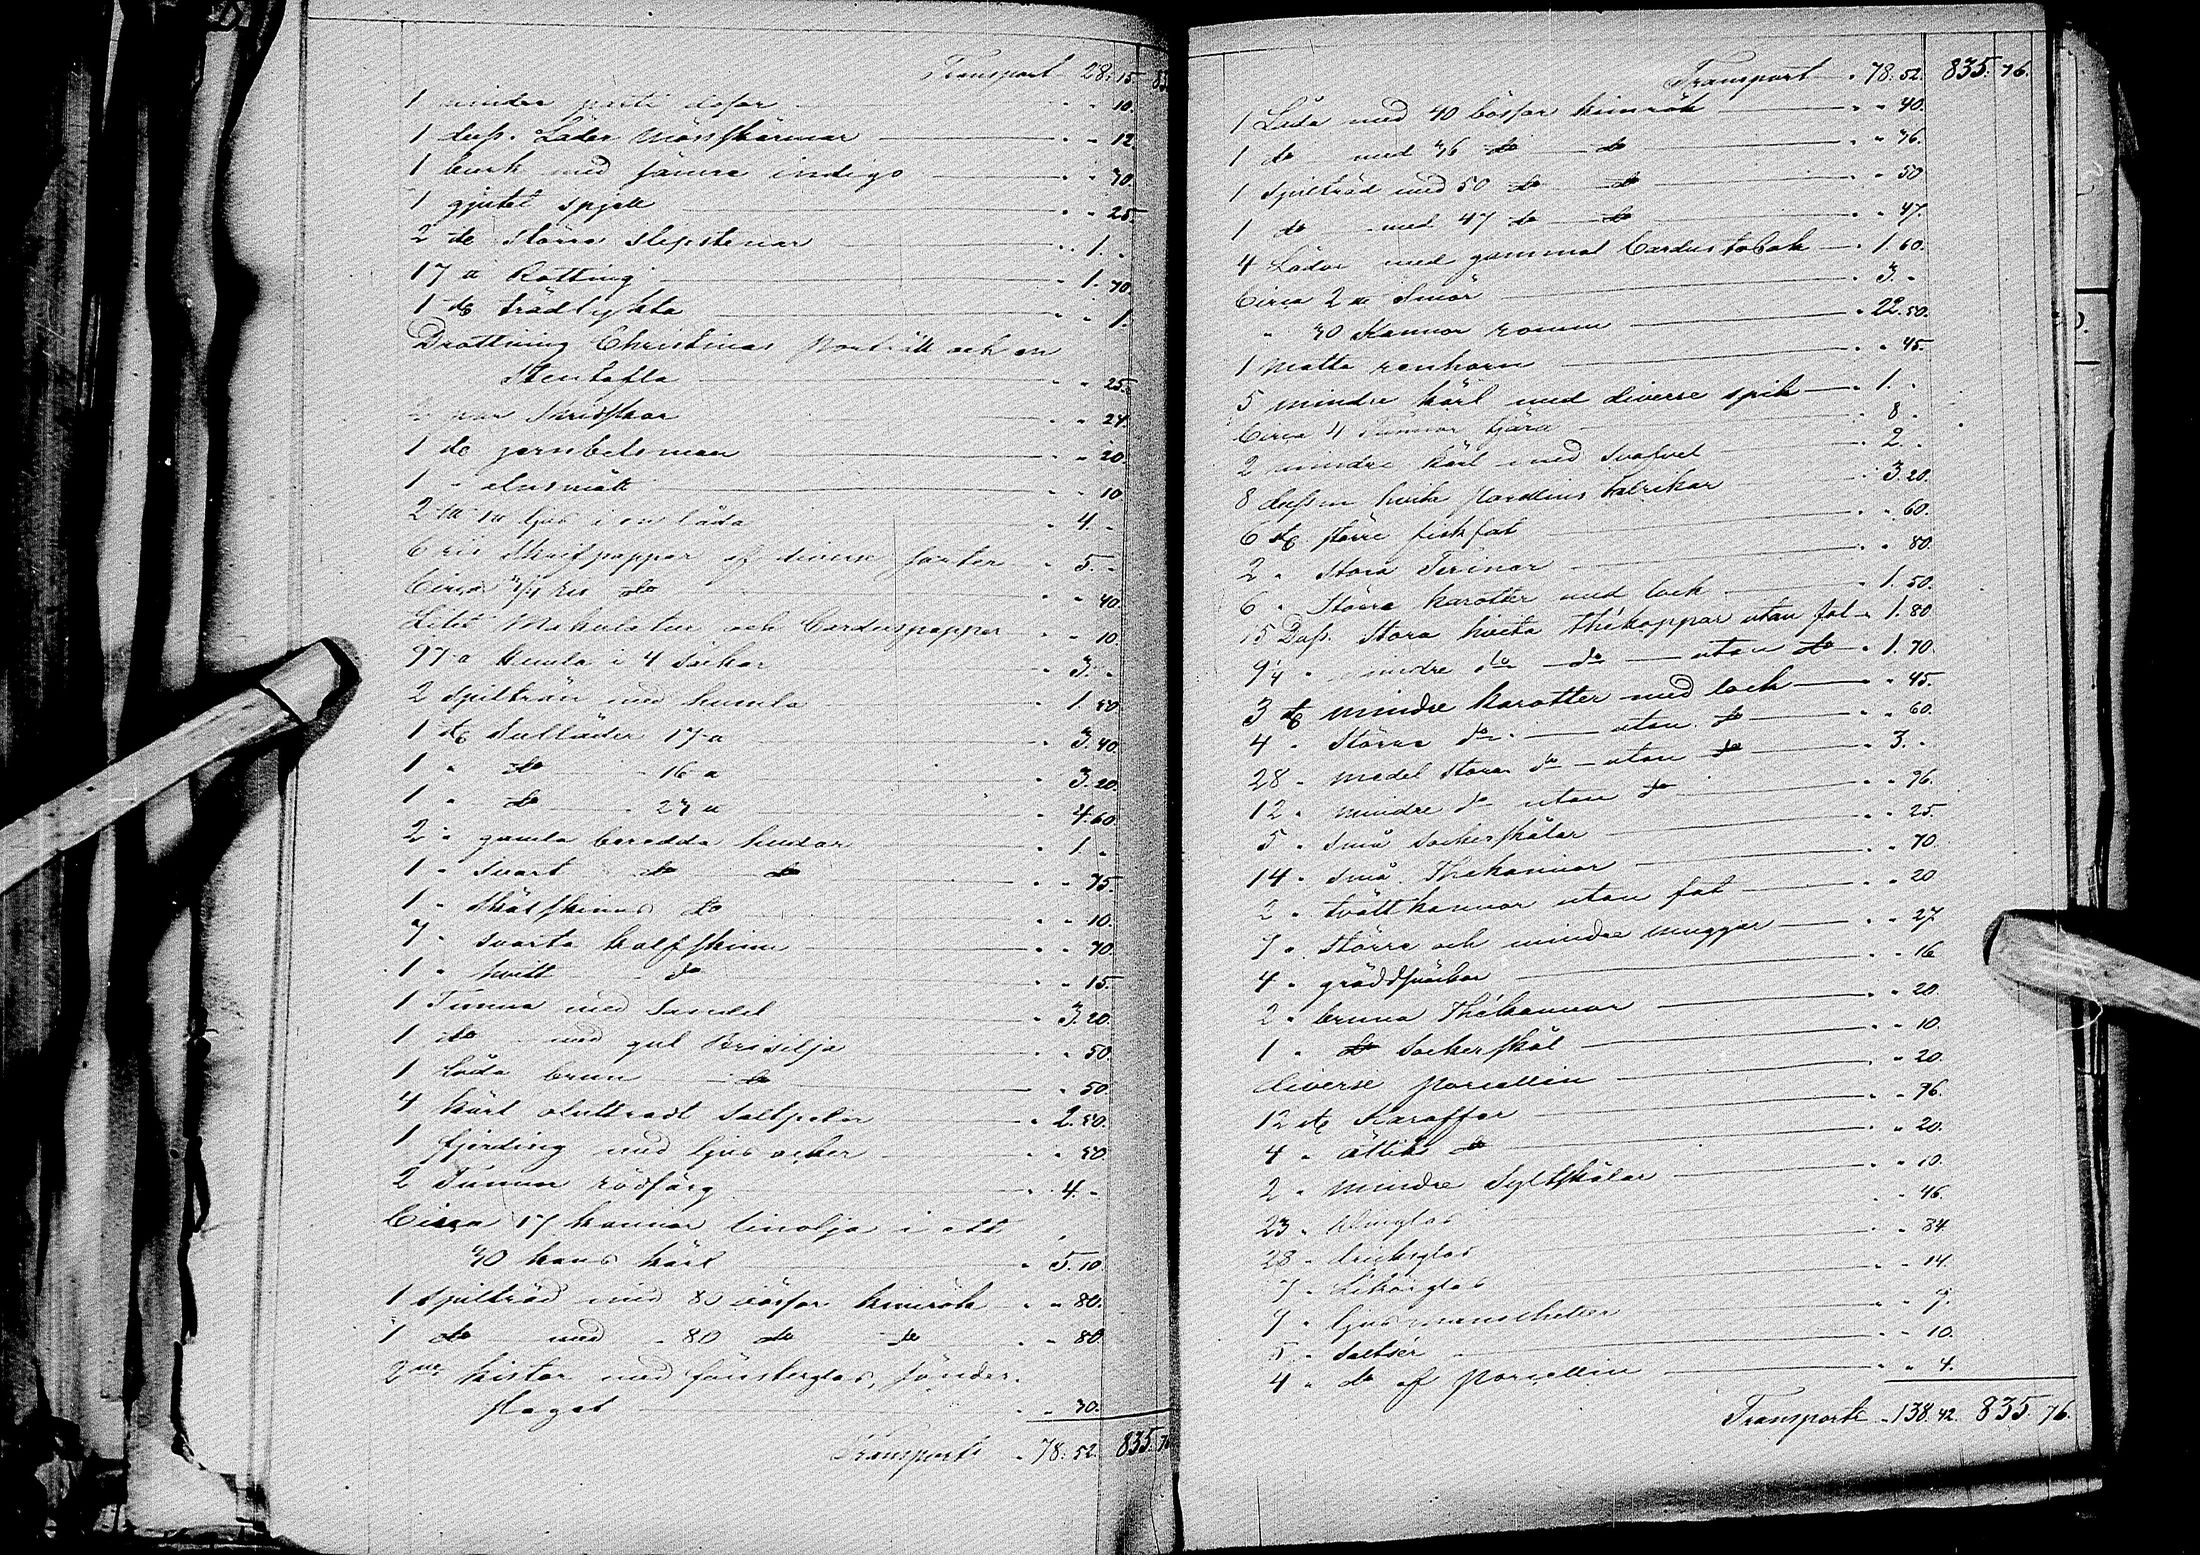 Transport 28. 15. 83
1 mindre parti dosor " " 10.
1 duss. Läder Mösskärmar " " 12.
1 burk med sämre indigo " " 30.
1 gjutet spjell " " 25.
2 st större slipstenar " 1. "
17 ℔ Rotting " 1. 70.
1 st trädlykta " " 1.
Drottning Christinas Porträtt och en
Stentafla " " 25.
par Skridskor " " 24.
1 st jernbetsman " " 20.
1 " alnsmått " " 10
2 ljus i en låda " 4. "
6 ris Skrifpapper af diverse sorter " 5. "
Circa 3/4 ris do " " 40.
Litet Makulatur och Carduspapper " " 10.
97 ℔ humla i 4 säckar " 3. "
2 spilträn med humla " 1. 50
1 st Sulläder 17 ℔ " 3. 40.
1 " do 16 ℔ " 3. 20.
1 " do 23 ℔ " 4. 60
2 " gamla beredda hudar " 1. "
1 " Svart do do " " 75.
1 " Skälskinns do " " 10.
7 " svarta kalfskinn " " 70.
1 " hvitt do " " 15.
1 Tunna med Sandel " 3. 20.
1 do med gul Bresilja " " 50.
1 Låda brun do " " 50.
4 kärl oluttradt Saltpeter " 2. 50.
1 fjerding med ljus ocker " " 50
2 Tunnor rödfärg " 4. "
Circa 17 kannor linolja i ett
30 kans kärl " 5. 10
1 spilträd med 80 bössor kimrök " " 80.
1 do med 80 do do " " 80
2ne kistor med fönsterglas, sönder-
slaget " " 30.
Transport " 78. 52. 835. 76
Transport " 78. 52. 835. 76.
1 Låda med 40 bössor kimrök " " 40.
1 do med 36 do do " " 36.
1 Spilträd med 50 do do " " 50
1 do med 47 do do " " 47.
4 Lådor med gammal Cardustobak " 1. 60.
Circa 2 ℔ Smör " 3. "
" 30 Kannor romm " 22. 50.
1 Matta renhorn " " 45.
5 mindre kärl med diverse spik " 1. "
Circa 4 Kannor tjära " 8 "
2 mindre kärl med Svafvel " 2. "
8 dussin hvita Pardeins tallrikar " 3. 20.
6 st större fiskfat " " 60.
2 " Stora Terinor " " 80.
6 " Större karotter med lock " 1. 50.
15 Duss. Stora hvita Thékoppar utan fat " 1. 80.
9 1/4 " mindre do do utan do " 1. 70.
3 st mindre karotter med lock " " 45.
4 " Större do utan do " " 60.
28 " medel stora do utan do " 3. "
12 " mindre do utan do " " 96.
5 " Små Sockerskålar " " 25.
14 " Små Thekannor " " 70.
2 " tvättkannor utan fat " " 20
9 " Större och mindre muggar " " 27
4 " gräddsnäckor " " 16
2 " bruna Thékannor " " 20.
1 " do Sockerskål " " 10.
diverse porcellin " " 20.
12 st Karaffer " " 96.
4 " ättiks do " " 20.
2 " mindre Syltskålar " " 10.
23 " Vinglas " " 46.
28 " dricksglas " " 84.
7 " Likörglas " " 14.
9 " ljusmanchetter " " 9.
5 " Saltser " " 10.
4 " do af Porcellin " " 4.
Transport " 138. 42. 835. 76.